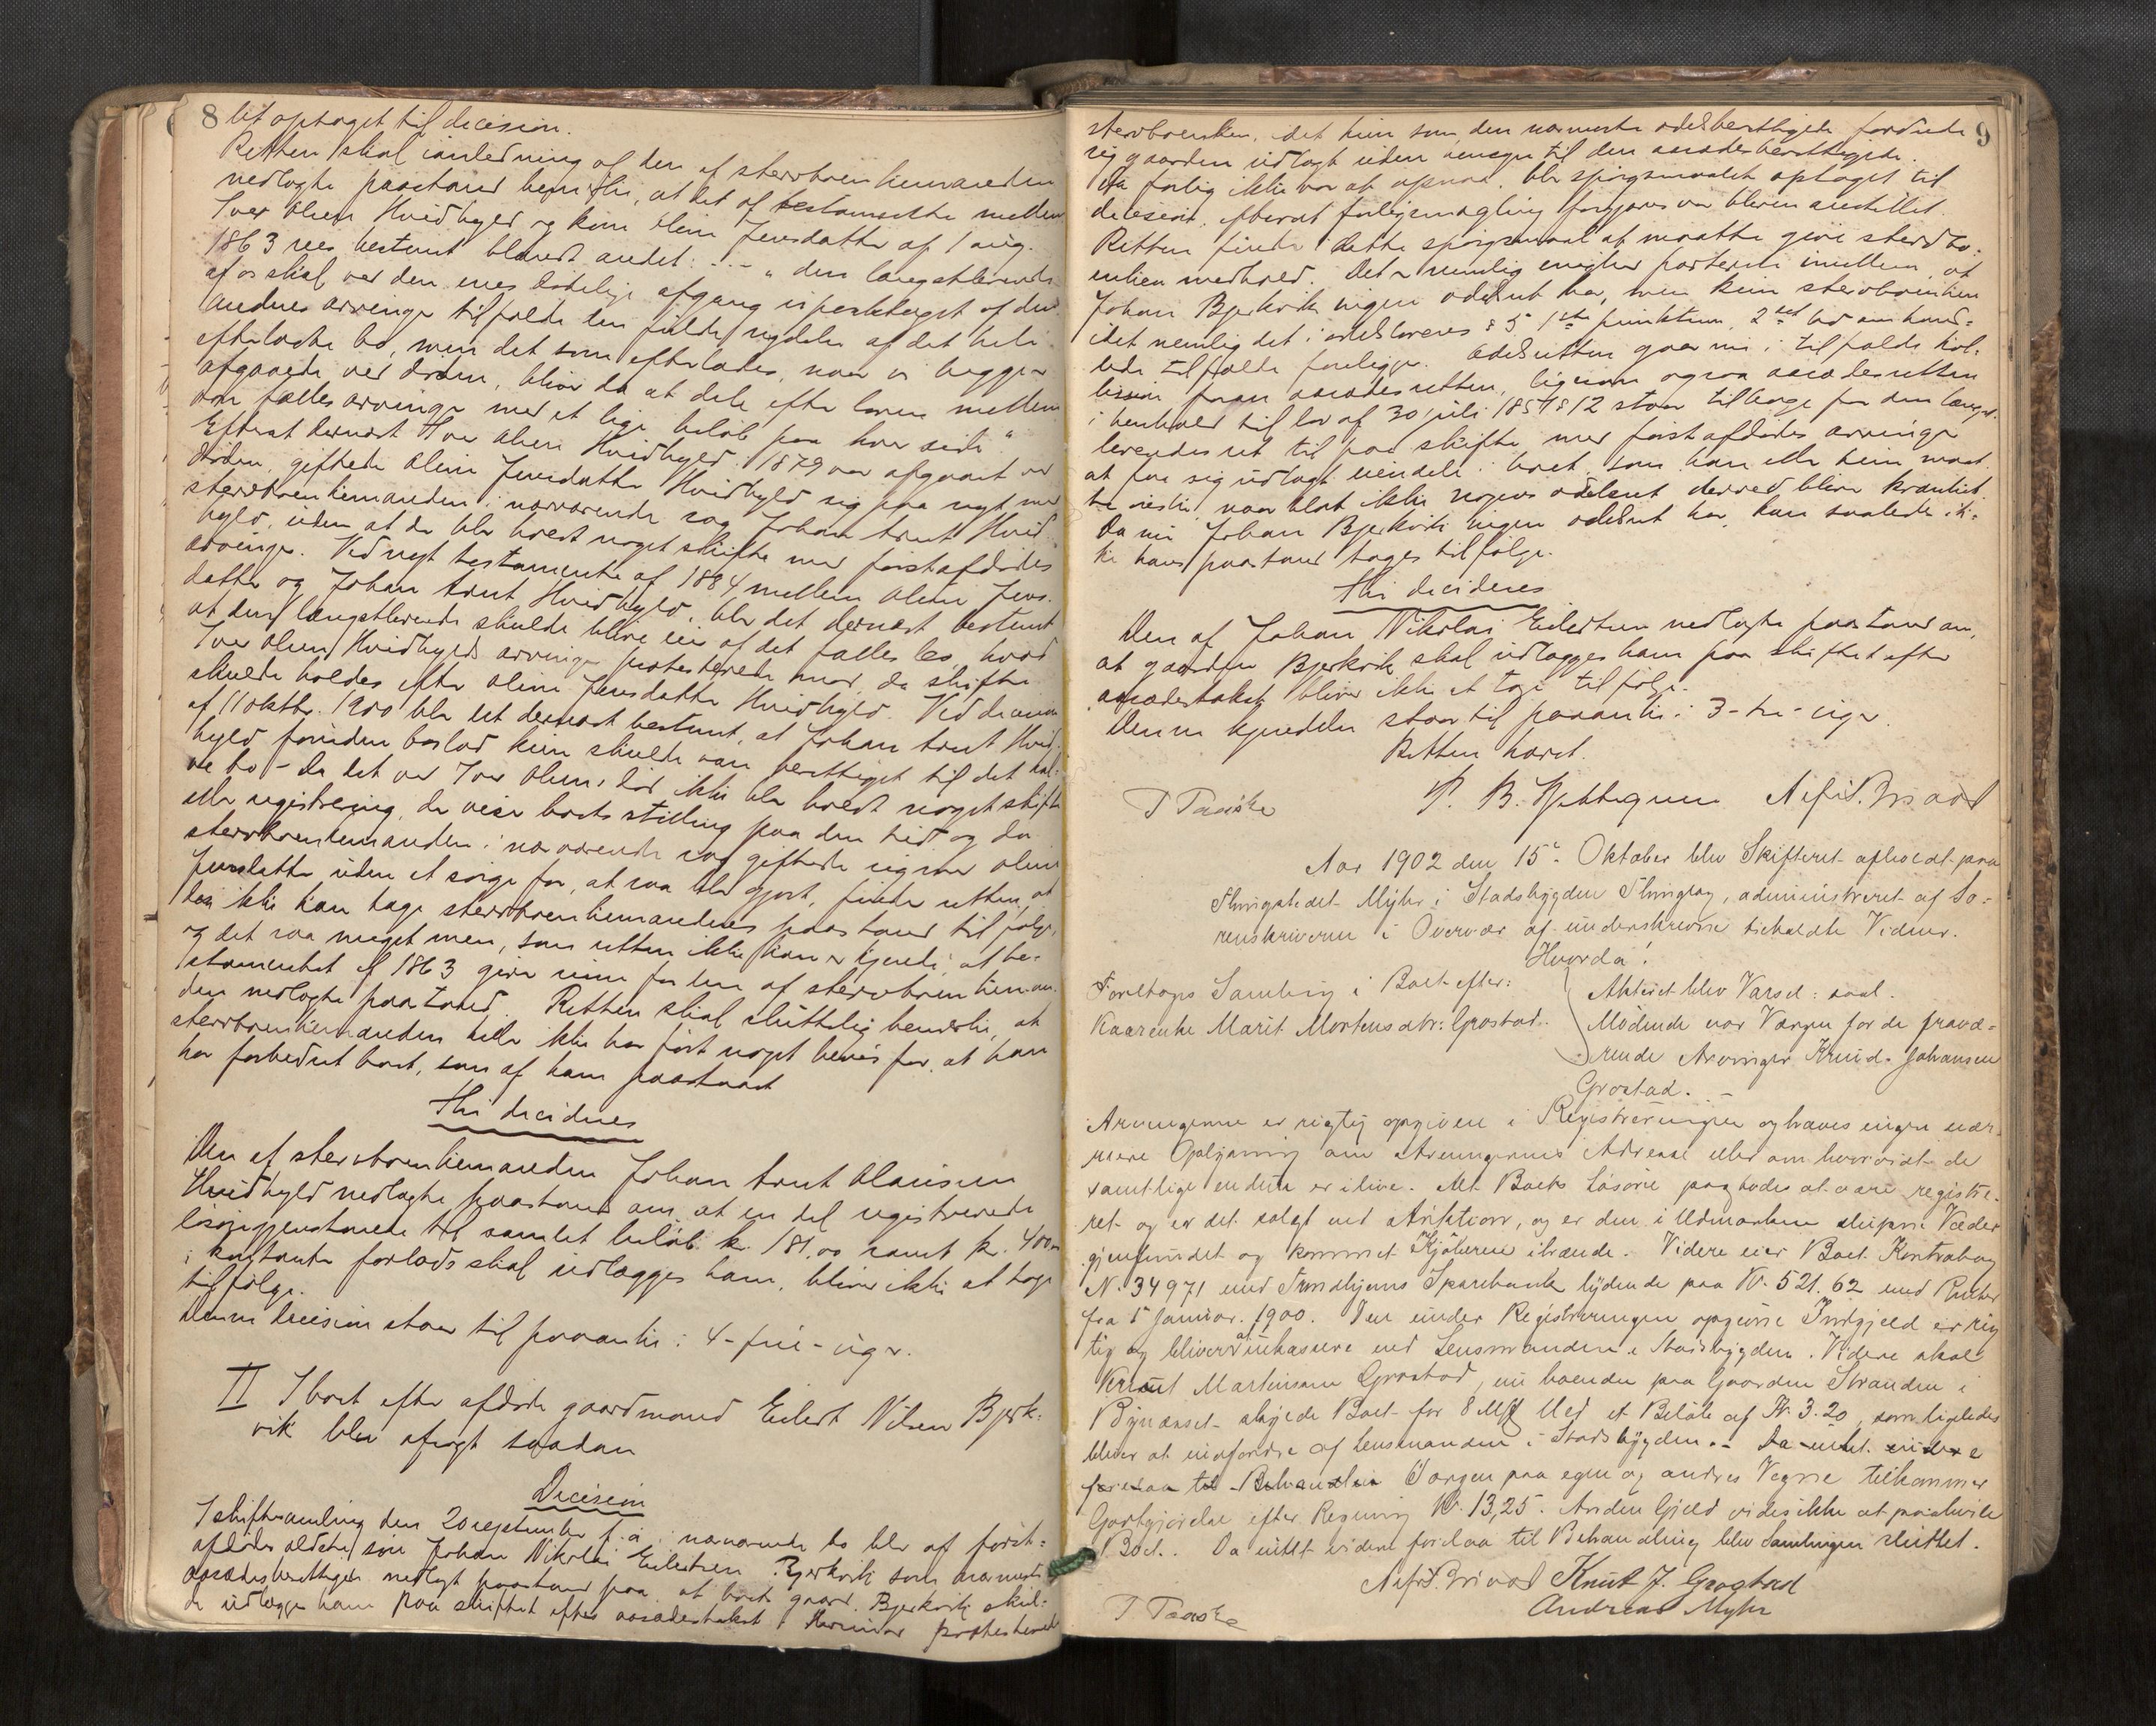 8
let optaget til decision.
Retten skal i anledning af den af stervboenkemanden
nedlagte paastand bemerke, at det af testamentet mellem
Iver Olsen Hvidhyld og kone Oline Jensdatter af 1 aug.
1863 sees bestemt blandt andet: - - "den længstlevende
af os skal ved den enes dødelige afgang upaaklaget af den
andens arvinger tilfalde den fulde nydelse af det hele
efterladte bo, men det som efterlades, naar vi begge er
afgaaede ved døden, bliver da at dele efter loven mellem
vore fælles arvinger med et lige beløb paa hver side".
Efterat dernæst Iver Olsen Hvidhyld i 1879 var afgaaet ved
døden, giftede Oline Jensdatter Hvidhyld sig paa nyt med
stervboenkemanden i nærværende sag Johan Arnt Hvid-
hyld, uden at der blev holdt noget skifte med førstafdødes
arvinger. Ved nyt testamente af 1884 mellem Oline Jens-
datter og Johan Arnt Hvidhyld, blev det dernæst bestemt
at den længstlevende skulde blive eier af det fælles bo, hvad
Iver Olsen Hvidhylds arvinger protesterede mod, da skifte
skulde holdes efter Oline Jensdatter Hvidhyld. Ved decision
af 11 oktbr. 1900 blev det dernæst bestemt, at Johan Arnt Hvid-
hyld foruden boslod kun skulde være berettiget til det hal-
ve bo - Da det ved Iver Olsens død ikke blev holdt noget skifte
eller registrering, der viser boets stilling paa den tid og da
stervboenkemanden i nærværende sag giftede sig med Oline
Jensdatter uden at sørge for, at saa blev gjort, finder retten, at
den ikke kan tage stervboenkemandens paastand til følge,
og det saa meget mere, som retten ikke kan erkjende, at te-
stamentet af 1863 giver rum for den af stervboenkeman-
den nedlagte paastand. Retten skal sluttelig bemerke, at
stervboenkemanden heller ikke har ført noget bevis for, at han
har forbedret boet, som af ham paastaaet
Thi decideres
Den af stervboenkemanden Johan Arnt Olaisen
Hvidhyld nedlagte paastand om at en del registrerede
løsøregjenstande til samlet beløb kr. 181,00 samt kr. 400,00
i kontante forlods skal udlægges ham, bliver ikke at tage
til følge.
Denne decision staar til paaanke i 4-fire-uger.
II I boet efter afdøde gaardmand Eilert Nilsen Bjerk-
vik blev afsagt saadan
Decision
I skiftesamling den 20 september f. a. i nærværende bo blev af først-
afdødes ældste søn Johan Nikolai Eilertsen Bjerkvik som nærmeste
aasædesberettiget nedlagt paastand paa at boets gaard Bjerkvik skul-
de udlægges ham paa skiftet efter aasædestakst. Herimod protesterede
9
stervboenken, idet hun som den nærmeste odelsberettigede fordrede
sig gaarden udlagt uden hensyn til den aasædesberettigede.
Da forlig ikke var at opnaa, blev spørgsmaalet optaget til
decision, efterat forligsmægling forgjæves var bleven anstillet.
Retten finder i dette spørgsmaal at maatte give stervbo-
enken medhold. Det er nemlig enighed parterne imellem, at
Johan Bjerkvik ingen odelsret har, men kun stervboenken
idet nemlig det i odelslovens § 5 1ste punktum, 2det led omhand-
lede tilfælde foreligger. Odelsretten gaar nu i tilfælde kol-
lision foran aasædesretten, ligesom ogsaa aasædesretten
i henhold til lov af 30 juli 1851 § 12 staar tilbage for den længst-
levendes ret til paa skifte med førstafdødes arvinger
at faa sig udlagt eiendele i boet, som han eller hun maat-
te ønske, naar blot ikke nogens odelsret derved bliver krænket.
Da nu Johan Bjerkvik ingen odelsret har, kan saaledes ik-
ke hans paastand tages til følge.
Thi decideres
Den af Johan Nikolai Eilertsen nedlagte paastand om,
at gaarden Bjerkvik skal udlægges ham paa skiftet efter
aasædestakst bliver ikke at tage til følge.
Denne kjendelse staar til paaanke i 3-tre-uger.
Retten hævet.
Aar 1902 den 15de Oktober blev Skifteret afholdt paa
Thingstedet Myhr i Stadsbygden Thinglag, administreret af So-
renskriveren i Overvær af underskrevne tilkaldte Vidner.
Hvorda:
Foreltops Samling i Boet efter:
Kaarenhe Marit Mortensdtr: Grøstad.
Akteret blev Varsel: saal.
Mødende var Værgen for de fravæ-
rende Arvinger Knud Johansen
Grøstad. -
Arvingerne er rigtig opgivne i Registreringen og haves ingen nær-
mere Oplysning om Arvingernes Adresse eller om hvorvidt de
samtlige endnu er ilive. Alt Boets Løsøre paastodes at være registre-
ret og er det solgt ved Auktion, og er den i Udmarken slupne Væder
gjenfundet og kommet Kjøberen ihænde. Videre eier Boet Kontrabog
N. 34971 med Trondhjems Sparebank lydende paa Kr. 521.62 med Renter
fra 5 Januar 1900. Den under Registreringen opgivne Indgjeld er rig
tig og bliver at inkassere ved Lensmanden i Stadsbygden. Videre skal
Knut Martinsen Grøstad, nu boende paa Gaarden Stranden i
Bynæsset skylde Boet for 8 Mk Uld et Beløb af Kr. 3.20, som ligeledes
bliver at indfordre af Lensmanden i Stadsbygden. - Da intet videre
forelaa til Behandlin Værgen paa egne og andres Vegne tilkommer
Godtgjørelse efter Regning Kr. 13,25. Anden Gjeld vides ikke at paahvile
Boet. Da intet videre forelaa til Behandling blev Samlingen sluttet.
Knut J. Grøstad
Andreas Myhr